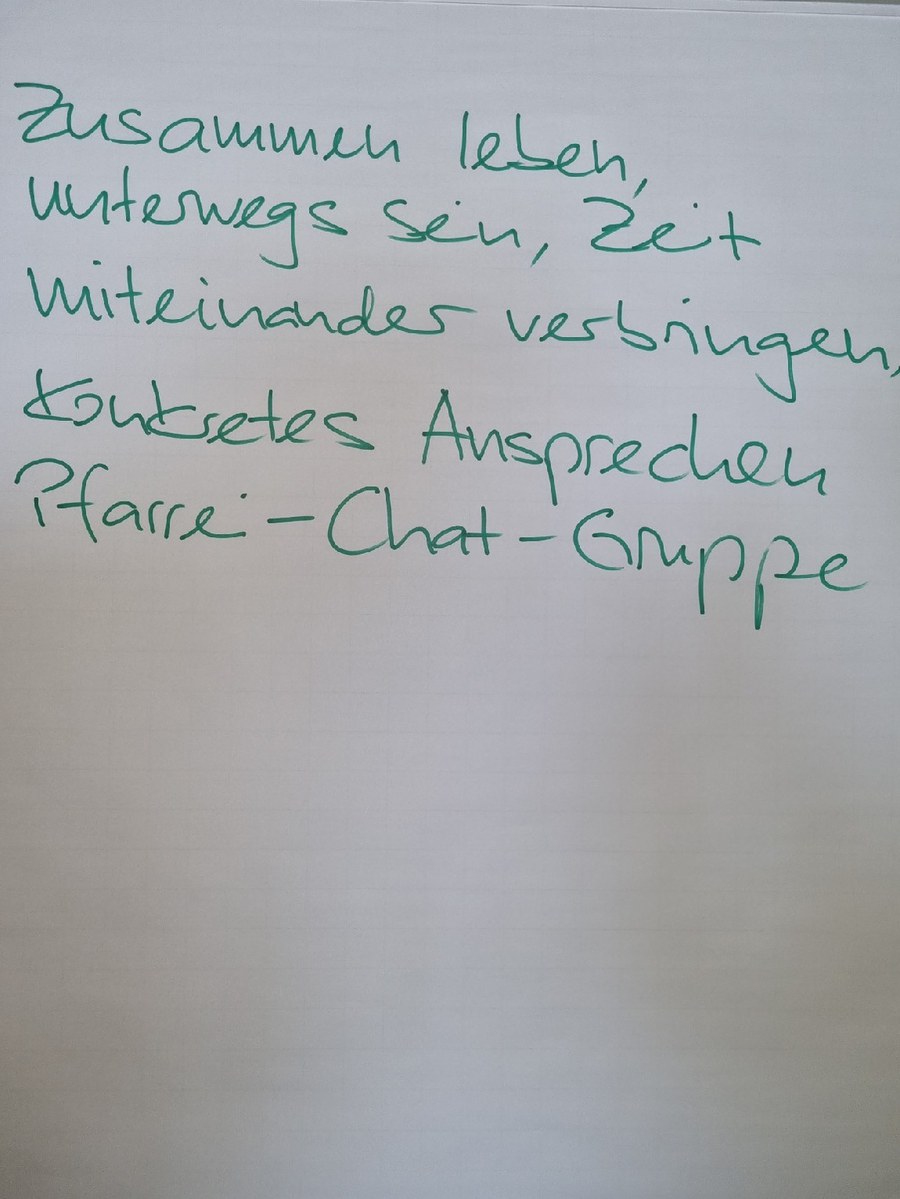 Zusammen leben,
unterwegs sein, Zeit
miteinander verbringen,
konkretes Ansprechen
Pfarrei-Chat-Gruppe